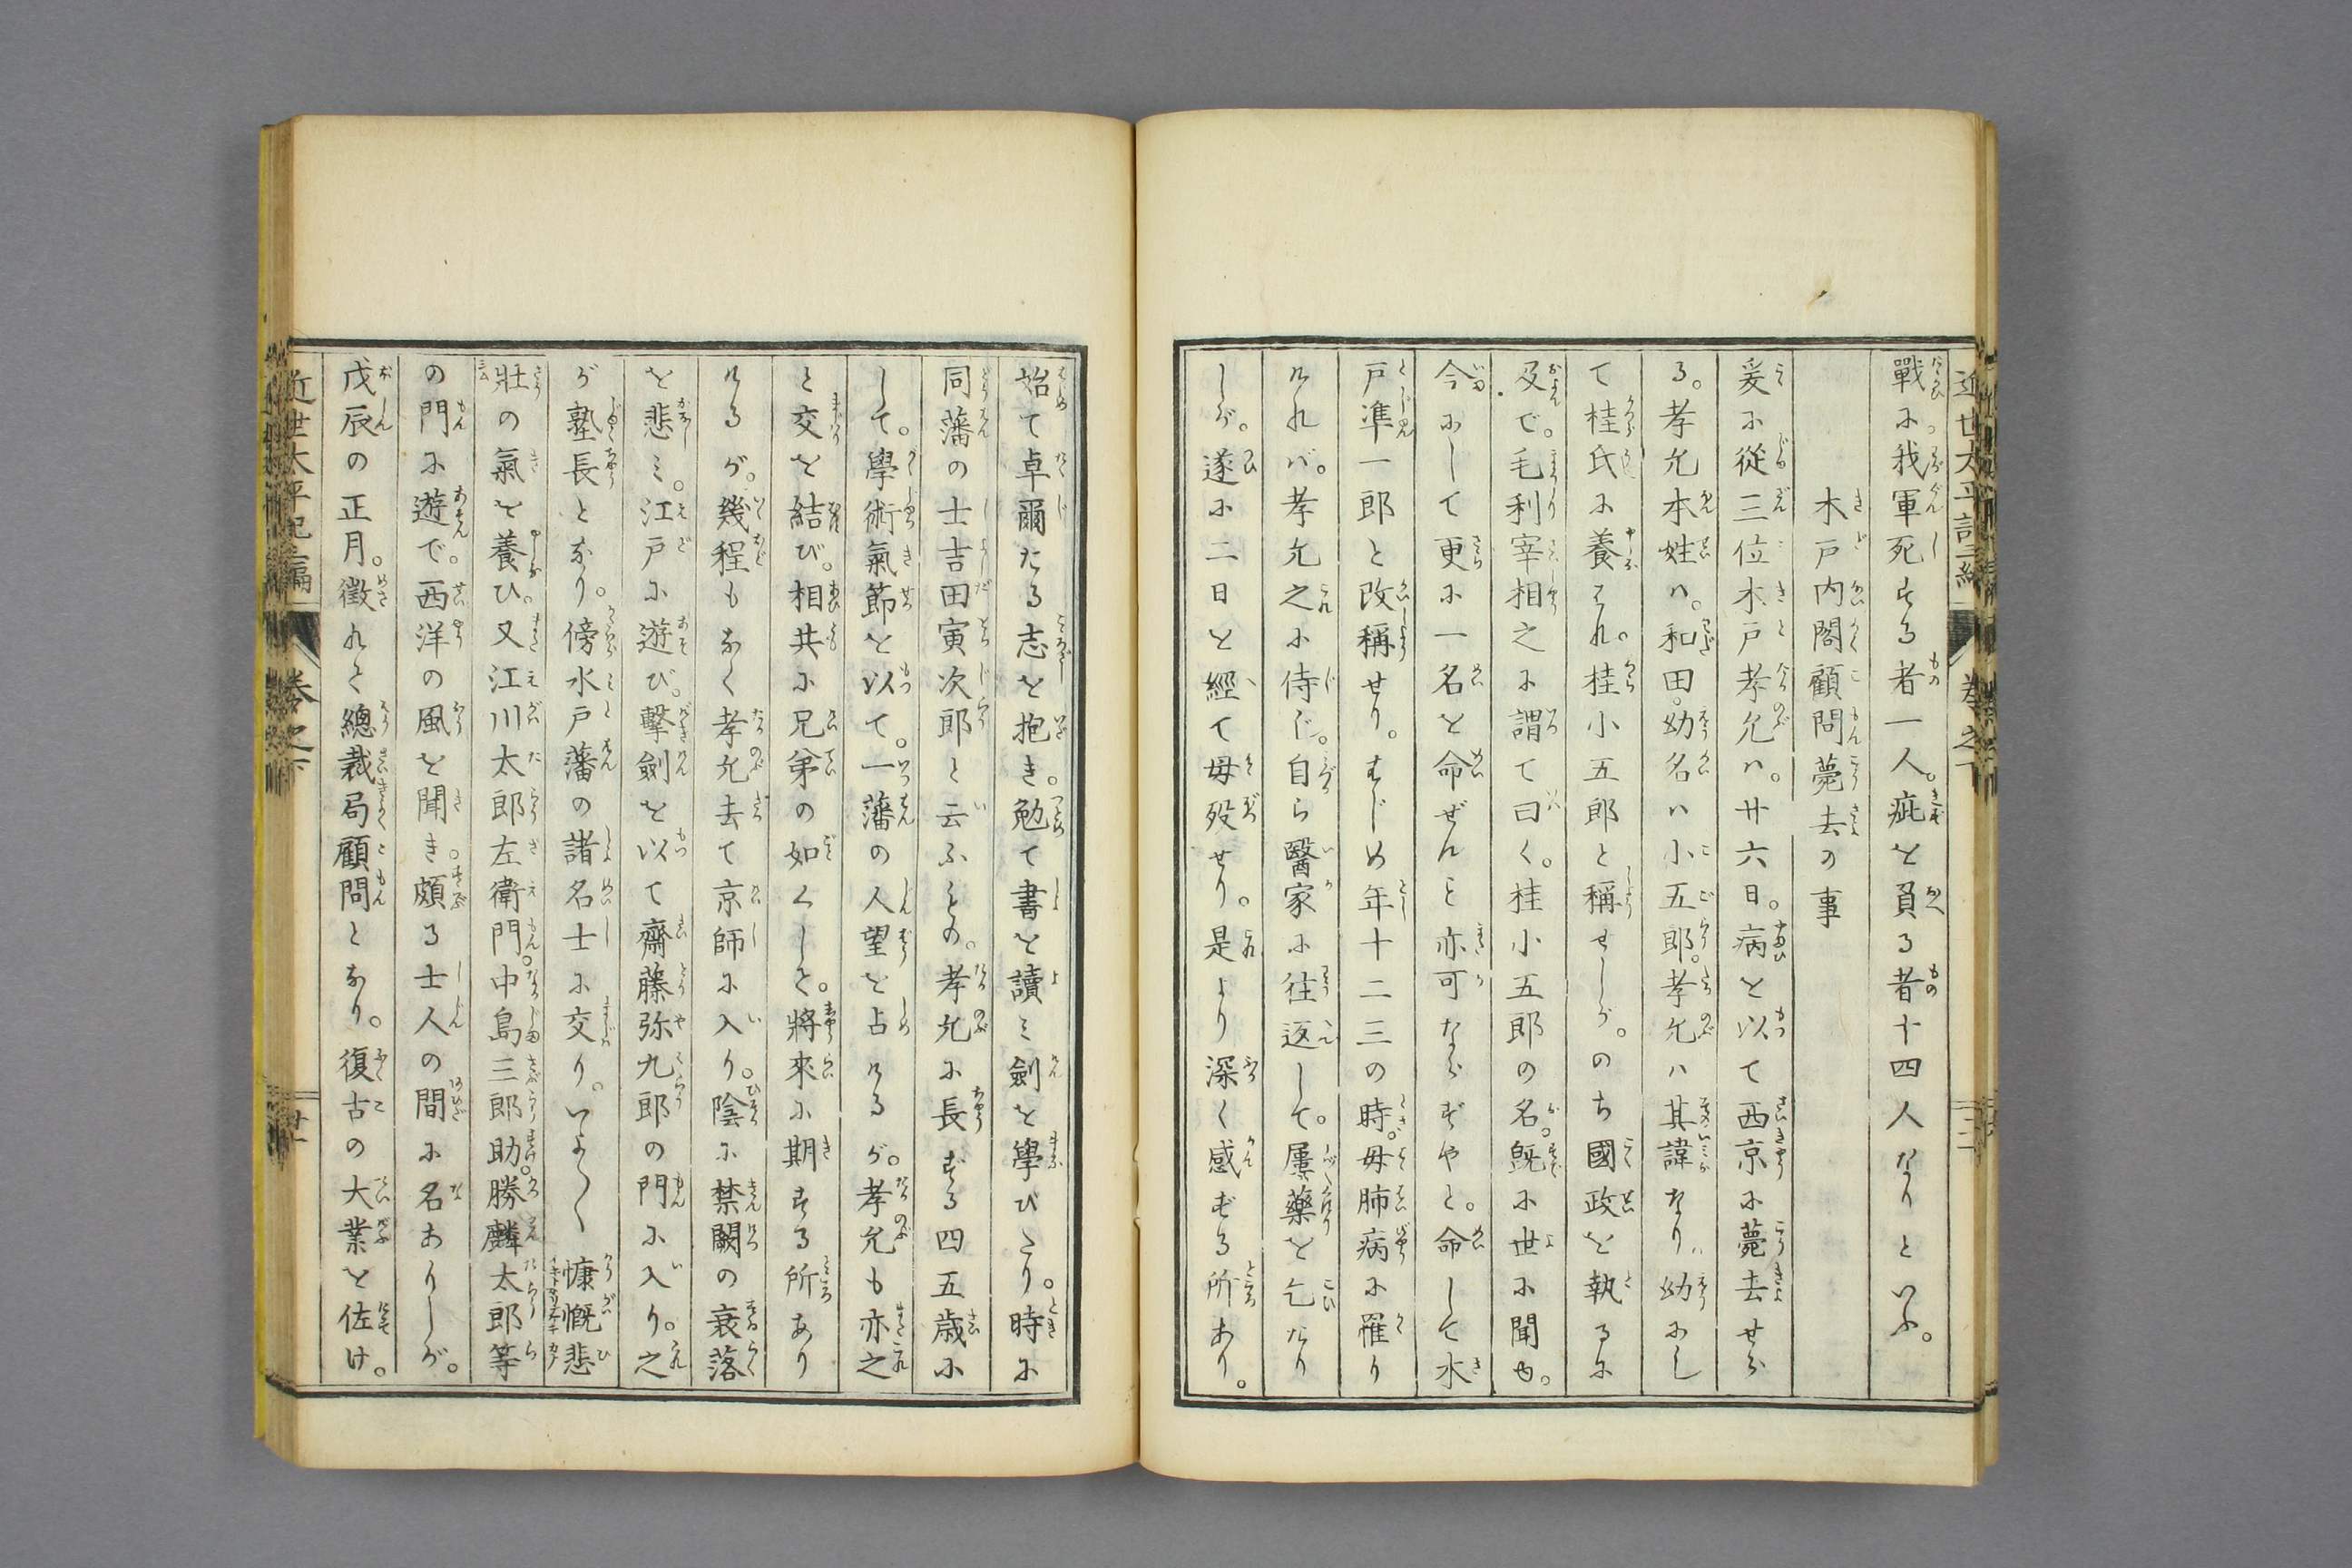 戰に。我軍死する者一人。疵を負る者十四人なりといふ。
木戸内閣顧問薨去の事
爰に從三位木戸孝允ハ。廿六日。病を以て西京に薨去せら
る。孝允本姓ハ。和田。幼名ハ小五郎。孝允ハ其諱なり。幼にし
て桂氏に養はれ。桂小五郎と稱せしが。のち國政を執るに
及で。毛利宰相之に謂て曰く。桂小五郎の名。既に世に聞ゆ。
今にして更に一名を命ぜんこと亦可ならずやと。命して木
戸準一郎と改稱せり。はじめ年十二三の時。母肺病に罹り
けれバ。孝允之に侍し。自ら醫家に往返して。屢藥を乞たり
しが。遂に二日を經て母歿せり。是より深く感ずる所あり。
始て卓爾たる志を抱き。勉て書を讀ミ劍を學びたり。時に
同藩の士吉田寅次郎と云ふもの。孝允に長ずる四五歳に
して。學術氣節を以て。一藩の人望を占けるが。孝允も亦之
と交を結び。相共に兄弟の如くして。將來に期する所あり
けるが。幾程もなく孝允去て京師に入り。陰に禁闕の衰落
を悲ミ。江戸に遊び。擊劍を以て齋藤弥九郎の門に入り。之
が塾長となり。傍水戸藩の諸名士に交り。いよ〳〵慷慨悲
壯の氣を養ひ。又江川太郎左衛門。中島三郎助。勝麟太郎等
の門に遊で。西洋の風を聞き。頗る士人の間に名ありしが。
戊辰の正月。徵れて總裁局顧問となり。復古の大業を佐け。
近世太平記二編
卷之下